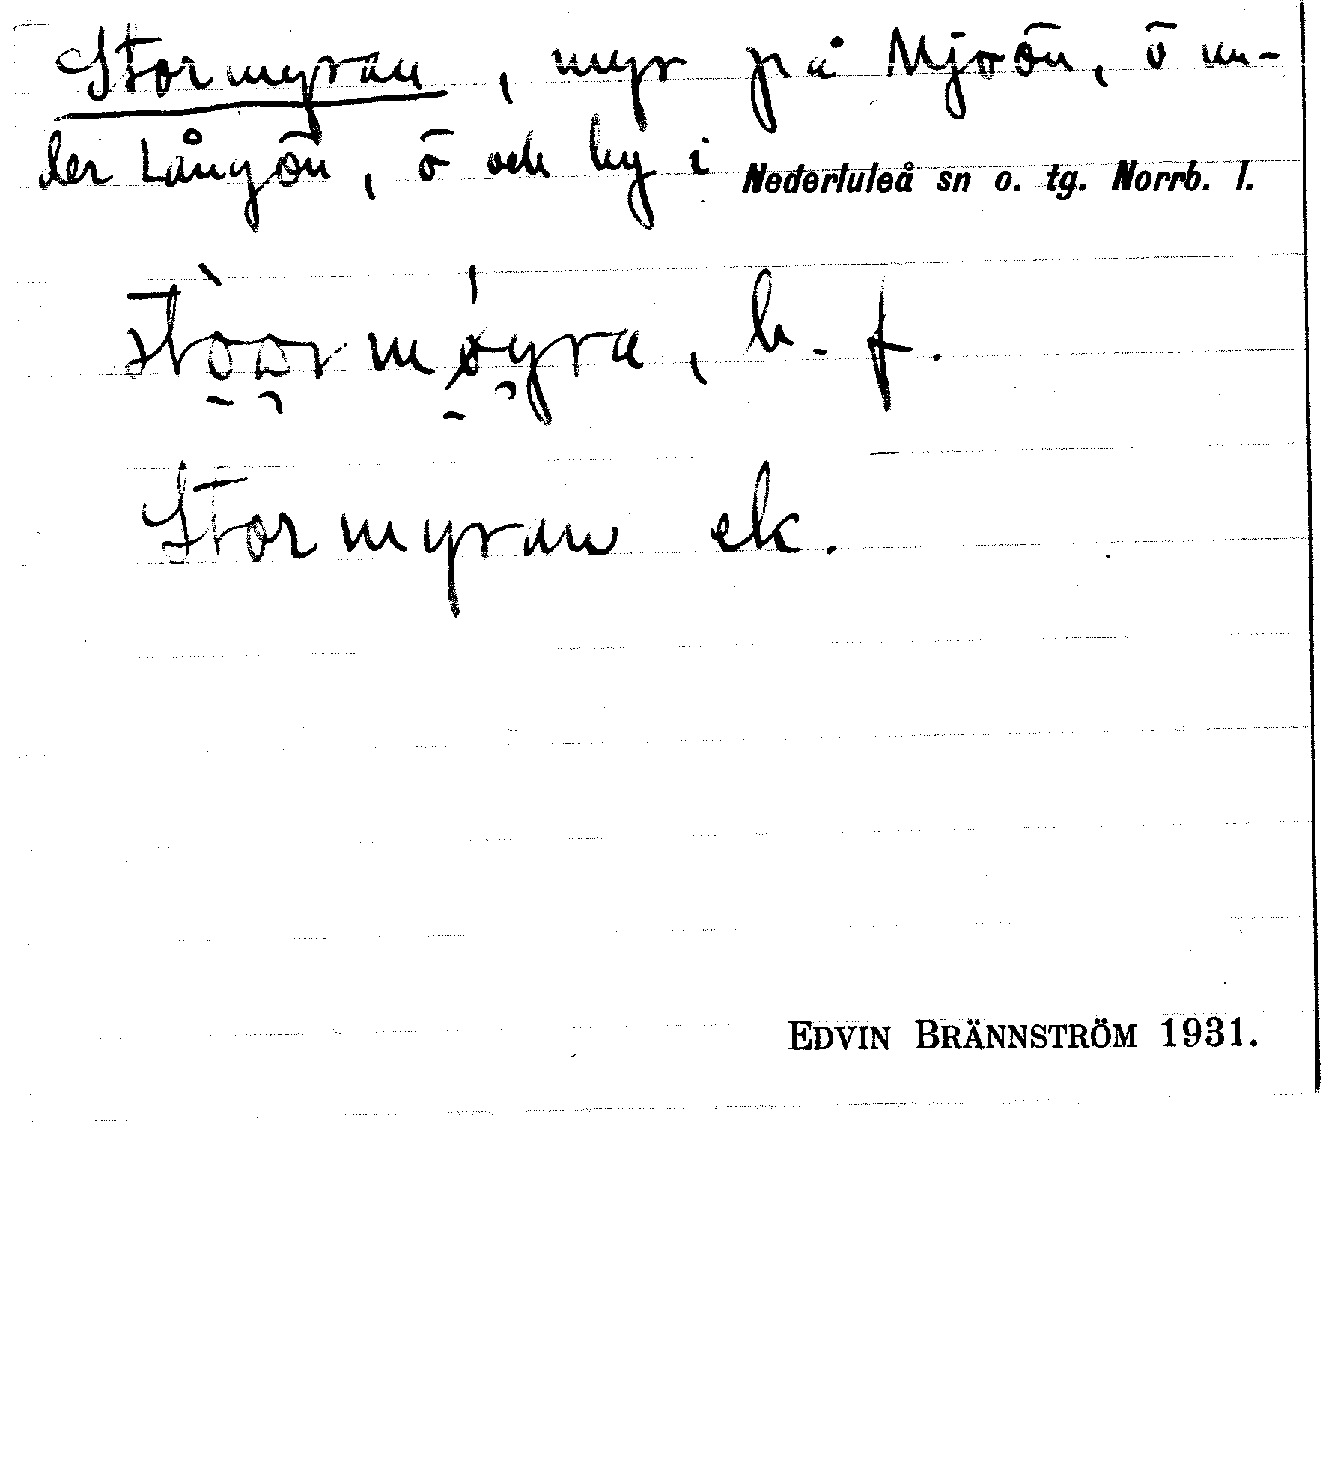 Stormyran, myr på Mjoön, ö un-
der Långön, ö och by i Nederluleå sn o. tg. Norrb. l.
stòormøyra, b. f.
Stormyran ek.
EDVIN BRÄNNSTRÖM 1931.